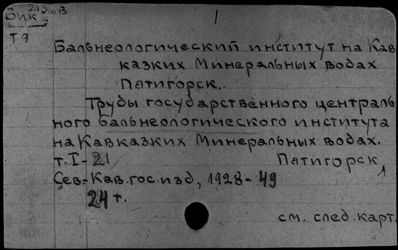 1
Бик
Т9
Бальнеологический институт на Кав
казких Минеральных водах
Пятигорск.
Трубы государственного централь
ного бальнеологического института
на Кавказких Минеральных водах.
т. I-21 Пятигорск,
Сев-Кав.гос.изд, 1928-49
24 т.
см. след. карт.